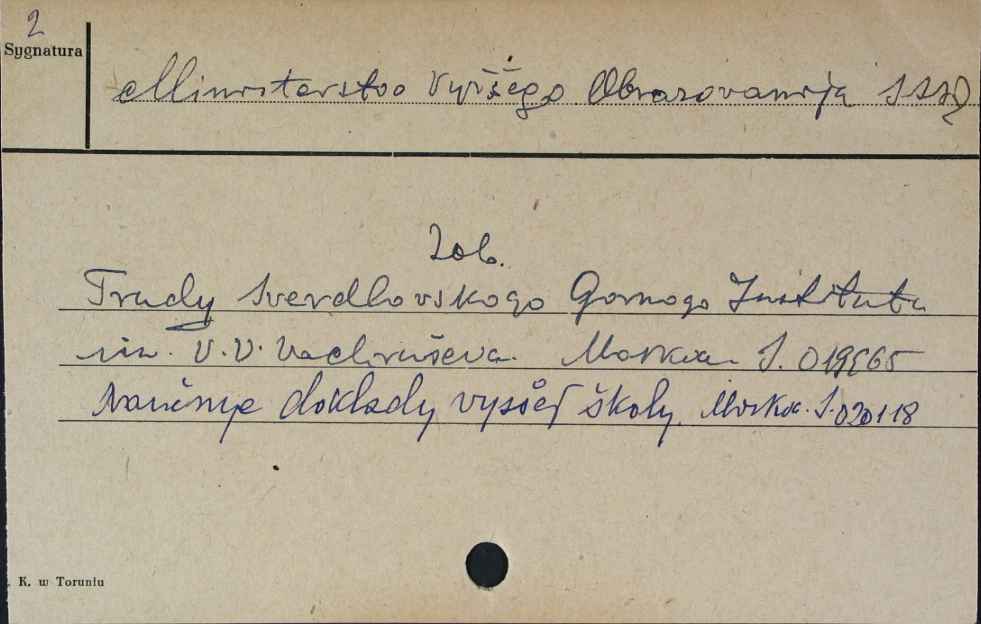 2
Sygnatura
Ministerstvo Vysšego Obrazovanija SSSR
Zob.
Trudy Sverdlovskogo Gornogo Instituta
im. V.V. Vachruševa. Moskva. S. 019565
Naučnye doklady vysšej školy. Moskva. S. 020118
K. w Toruniu